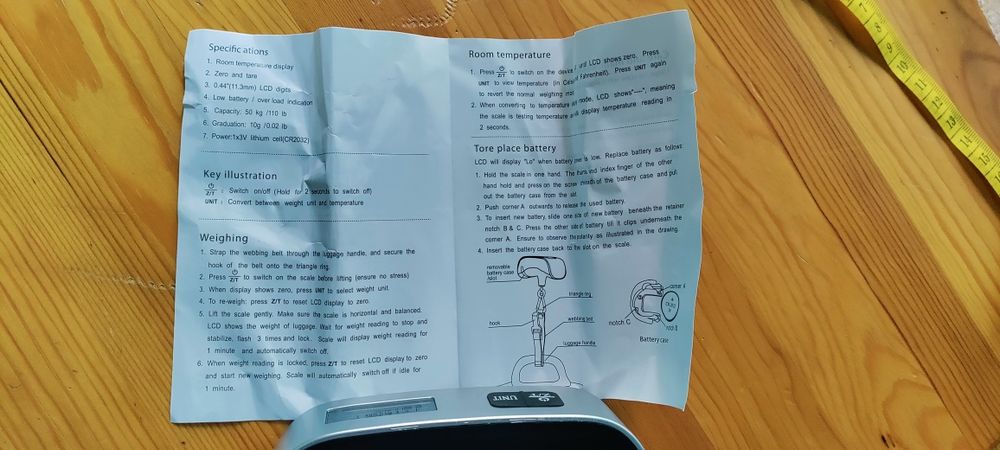 Specifications
1. Room temperature display
2. Zero and tare
3. 0.44"(11.3mm) LCD digits
4. Low battery / over load indication
5. Capacity: 50 kg /110 lb
6. Graduation: 10g /0.02 lb
7. Power:1x3V lithium cell(CR2032)
Key illustration
Z/T : Switch on/off (Hold for 2 seconds to switch off)
UNIT : Convert between weight unit and temperature
Weighing
1. Strap the webbing belt through the luggage handle, and secure the
hook of the belt onto the triangle ring.
2. Press Z/T to switch on the scale before lifting (ensure no stress)
3. When display shows zero, press UNIT to select weight unit.
4. To re-weigh: press Z/T to reset LCD display to zero.
5. Lift the scale gently. Make sure the scale is horizontal and balanced.
LCD shows the weight of luggage. Wait for weight reading to stop and
stabilize, flash 3 times and lock. Scale will display weight reading for
1 minute and automatically switch off.
6. When weight reading is locked, press Z/T to reset LCD display to zero
and start new weighing. Scale will automatically switch off if idle for
1 minute.
Room temperature
1. Press Z/T to switch on the device until LCD shows zero. Press
UNIT to view temperature (in Fahrenheit). Press UNIT again
to revert the normal weighing
2. When converting to temperature mode, LCD shows"----", meaning
the scale is testing temperature display temperature reading in
2 seconds.
Tore place battery
LCD will display "Lo" when battery is low. Replace battery as follows
1. Hold the scale in one hand. The thumb and index finger of the other
hand hold and press on the of the battery case and pull
out the battery case from the slot
2. Push corner A outwards to release the used battery.
3. To insert new battery, slide one side of new battery beneath the retainer
notch B & C. Press the other side of battery till it clips underneath the
corner A. Ensure to observe the polarity as illustrated in the drawing.
4. Insert the battery case back to the slot on the scale.
removable
battery case
slot
triangle ring
hook
webbing belt
luggage handle
corner A
notch C
Battery case
UNIT
Z/T
7
8
9
10
11
12
13
14
15